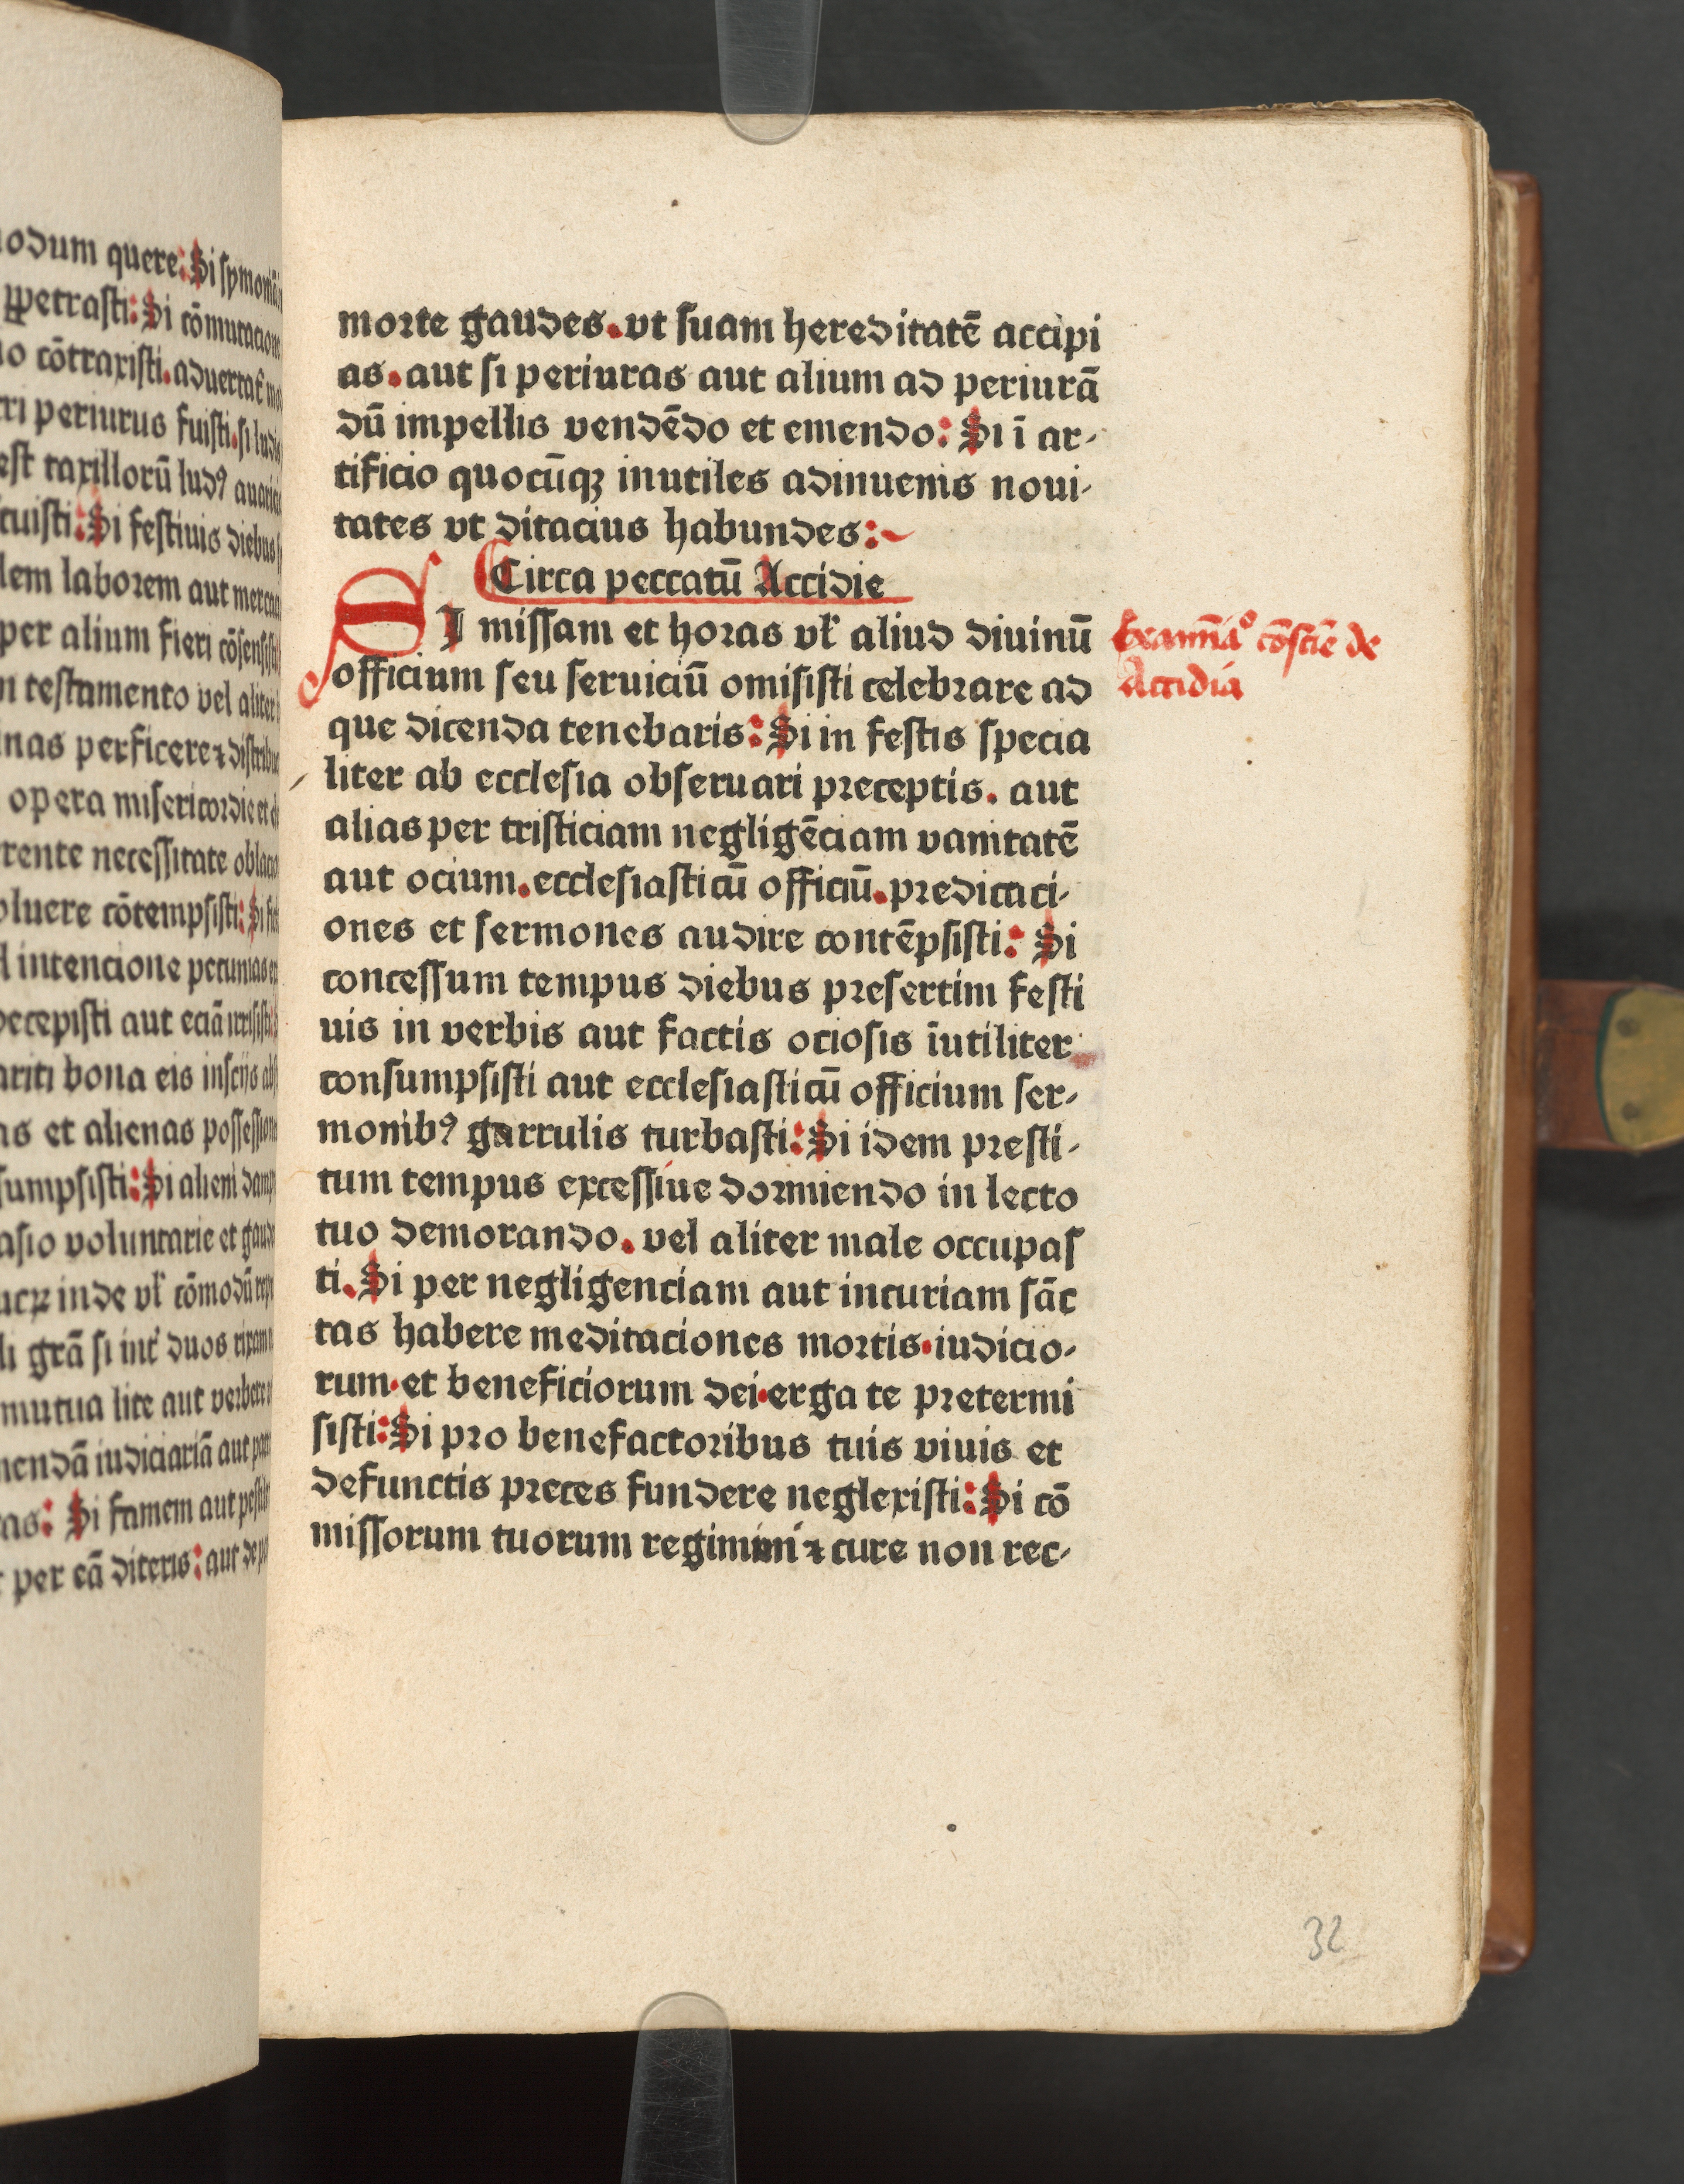 odum quere: Si symoniā
ꝑpetrasti: Si cōmutacion
o cōtraxisti. aduertat
ri periurus fuisti. si
est taxillorū ludꝰ
tuisti: Si festiuis diebus
lem laborem aut
per alium fieri
testamento vel aliter
nas perficere ⁊
opera misericordie et
rente necessitate
oluere cōtempsisti: Si
intencione pecunias
ecepisti aut eciā
ariti bona eis inscijs
as et alienas possession
sumpsisti: Si alieni
asio voluntarie et
inde vl' cōmodū
grā si int' duos
mutua lite aut verbere
mendā iudiciariā aut
as: Si famem aut
per eā diteris: aut
morte gaudes. vt suam hereditatē accipi
as. aut si periuras aut alium ad periurā
dū impellis vendēdo et emendo: Si ī ar-
tificio quocūqꝫ inutiles adinuenis noui-
tates vt ditacius habundes:
Circa peccatū Accidie
SI missam et horas vl' aliud diuinū
officium seu seruiciū omisisti celebrare ad
que dicenda tenebaris: Si in festis specia
liter ab ecclesia obseruari preceptis. aut
alias per tristiciam negligēciam vanitatē
aut ocium. ecclesiasticū officiū. predicaci-
ones et sermones audire contēpsisti: Si
concessum tempus diebus presertim festi
uis in verbis aut factis ociosis īutiliter
consumpsisti aut ecclesiasticū officium ser-
monibꝰ garrulis turbasti: Si idem presti-
tum tempus excessiue dormiendo in lecto
tuo demorando. vel aliter male occupas
ti. Si per negligenciam aut incuriam sāc
tas habere meditaciones mortis. iudicio-
rum. et beneficiorum dei. erga te pretermi
sisti: Si pro benefactoribus tuis viuis et
defunctis preces fundere neglexisti: Si cō
missorum tuorum regimini ⁊ cure non rec-
Examīaᵒ cōsciē de
Accidia
32